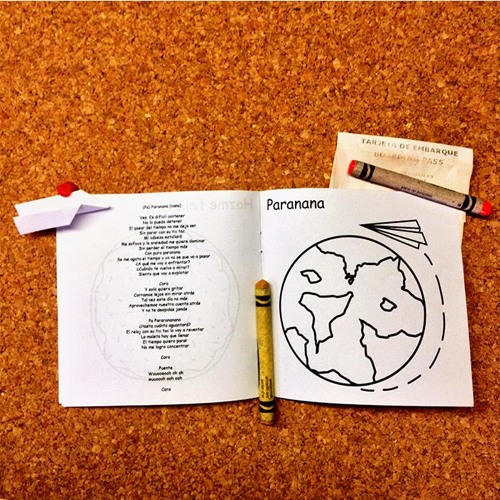 (Pa) Paranana (nana)
Veo, Es dificil contener
No lo puedo detener
El pasar del tiempo no me deja ser
Sin parar con su tic tac
Mi cabeza estallará
Me sofoco y la ansiedad me quiere dominar
Sin perder el tiempo más
Con puro paranana
Se me agota el tiempo y yo no se que va a pasar
¿A qué me voy a enfrentar?
¿Cuándo te vuelvo a mirar?
Siento que voy a explotar
Coro
Y solo quiero gritar
Corramos lejos sin mirar atrás
Tal vez este día no más
Aprovechemos nuestra cuenta atrás
Y no te despidas jamás
Pa Paranananana
¿Hasta cuánto aguantaré?
El reloj con su tic tac lo voy a reventar
La maleta hay que llenar
El tiempo quiero parar
No me logro concentrar
Coro
Puente
Wouooooh oh oh
wuooooh ooh ooh
Coro
Paranana
TARJETA DE EMBARQUE
BOARDING PASS